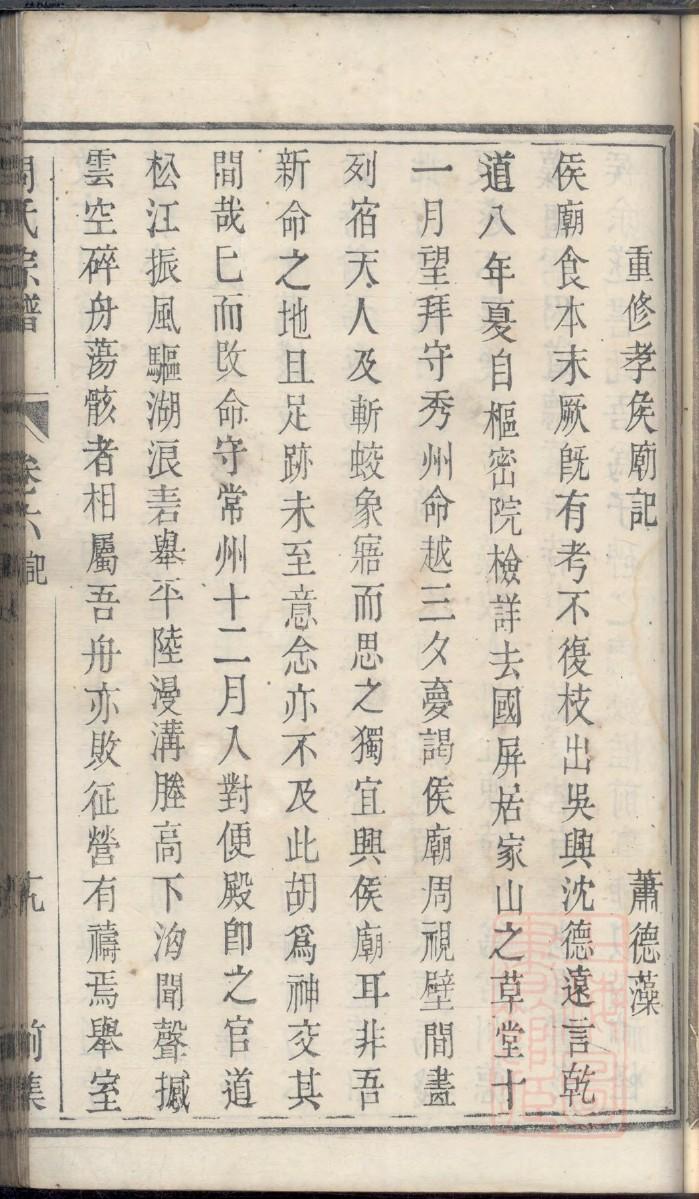 重修孝侯廟記 蕭德藻
侯廟食本末厥旣有考不復枝出吳興沈德遠言乾
道八年夏自樞密院檢詳去國屏居家山之草堂十
一月望拜守秀州命越三夕夢謁侯廟周視壁間畫
列宿天人及斬蛟象寤而思之獨宜興侯廟耳非吾
新命之地且足跡未至意念亦不及此胡爲神交其
間哉已而改命守常州十二月入對便殿卽之官道
松江振風驅湖浪砉舉平陸漫溝塍高下洶聞聲撼
雲空碎舟蕩骸者相屬吾舟亦敗征營有禱焉舉室
周氏宗譜 卷六 記 前集